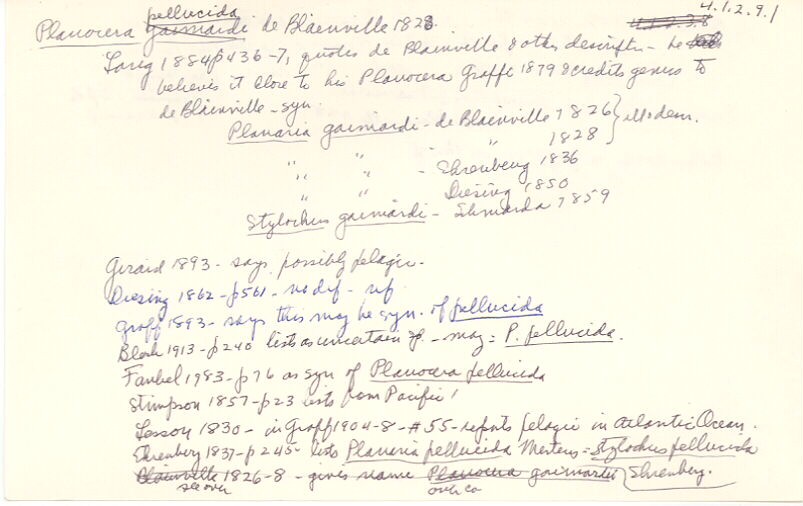 pellucida 4.1.2.9.1
Planocera gaimardi de Blainville 1828 4.1.2.3.8
Lang 1884 p436-7, quotes de Blainville & other descriptn - he
believes it close to his Planocera Graffi 1879 & credits genus to
de Blainville - syn.
Planaria gaimardi - de Blainville 1826 } illus dem.
" " " 1828
" " - Ehrenberg 1836
" " Diesing 1850
Stylochus gaimardi - Schmarda 1859
Girard 1893 - says possibly pelagic -
Diesing 1862 - p561 - no dif - nf
Graff 1893 - says this may be syn. of pellucida
Bock 1913 - p240 lists as uncertain sp - may = P. pellucida.
Faubel 1983 - p76 as syn of Planocera pellucida
Stimpson 1857 - p23 lists from Pacific!
Lesson 1830 - in Graff 1904-8 - #55 - reports pelagic in Atlantic Ocean.
Ehrenberg 1837 - p245 - lists Planaria pellucida Mertens = Stylochus pellucida
Blainville 1826-8 - gives name Planocera gaimardi Ehrenberg.
see over over